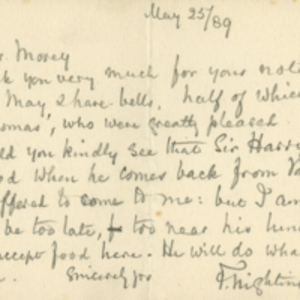 May 25/89
r. Morey
k you very much for your
May, & hare-bells, half of which
omas', who were greatly pleased
ld you kindly see that Sir Harr
od when he comes back from
ffered to come to me: but I am
be too late, & too near his
accept food here. He will do wha
Sincerely yrs
F. Nightin